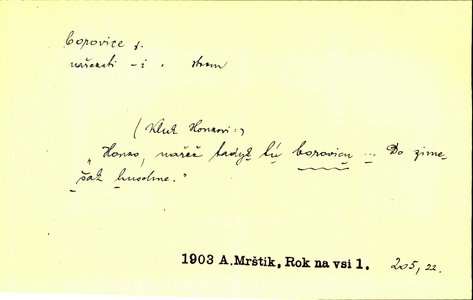 borovice f.
nařezati -i . strom
(Kluk Honzovi:)
"Honzo, nařež tadyk tú borovicu ... Do zime-
šak huschne."
1903 A.Mrštík, Rok na vsi 1. 205, 22.